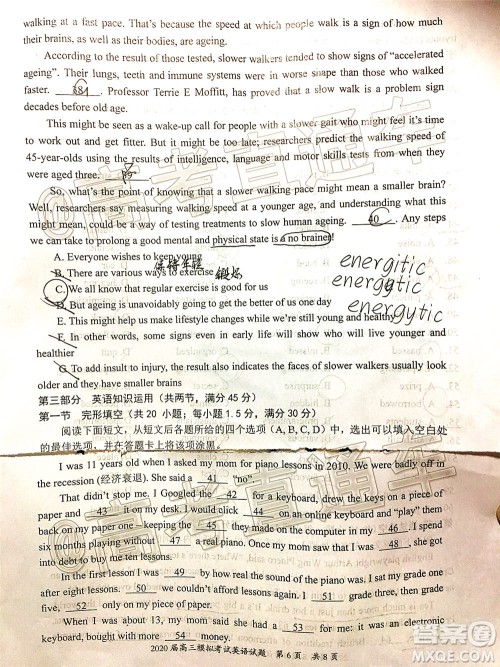 walking at a fast pace. That's because the speed at which people walk is a sign of how much
their brains, as well as their bodies, are ageing.
According to the result of those tested, slower walkers tended to show signs of "accelerated
ageing". Their lungs, teeth and immune systems were in worse shape than those who walked
faster. 38 . Professor Terrie E Moffitt, has proved that a slow walk is a problem sign
decades before old age.
This might be seen as a wake-up call for people with a slower gait who might feel it's time
to work out and get fitter. But it might be too late; researchers predict the walking speed of
45-year-olds using the results of intelligence, language and motor skills tests from when they
were aged three.
So, what's the point of knowing that a slower walking pace might mean a smaller brain?
Well, researchers say measuring walking speed at a younger age, and understanding what this
might mean, could be a way of testing treatments to slow human ageing. 40 . Any steps
we can take to prolong a good mental and physical state is a no brainer!
A. Everyone wishes to keep young
保持年轻
B. There are various ways to exercise
锻炼
C. We all know that regular exercise is good for us
D. But ageing is unavoidably going to get the better of us one day
E. This might help us make lifestyle changes while we're still young and healthy
energitic
energgtic
energytic
F. In other words, some signs even in early life will show who will live younger and
healthier
G. To add insult to injury, the result also indicates the faces of slower walkers usually look
older and they have smaller brains
第三部分 英语知识运用（共两节，满分 45 分）
第一节 完形填空（共 20 小题；每小题 1.5 分，满分 30 分）
阅读下面短文，从短文后各题所给的四个选项（A, B, C, D）中，选出可以填入空白处
的最佳选项，并在答题卡上将该项涂黑。
I was 11 years old when I asked my mom for piano lessons in 2010. We were badly off in
the recession (经济衰退). She said a 41 "no".
That didn't stop me. I Googled the 42 for a keyboard, drew the keys on a piece of
paper and 43 it on my desk. I would click 44 on an online keyboard and "play" them
back on my paper one—keeping the 45 they made on the computer in my 46 . I spend
six months playing without 47 a real piano. Once my mom saw that I was 48 , she got
into debt to buy me ten lessons.
In the first lesson I was 49 by how real the sound of the piano was. I sat my grade one
after eight lessons. 50 we couldn't afford lessons again. I 51 grade three, then grade
five, 52 only on my piece of paper.
When I was about 13, my mom said she had a 53 for me: it was an electronic
keyboard, bought with more 54 money.
2020 届高三模拟考试英语试题 第 6 页 共 8 页
高考直通车
高考直通车
答案圈